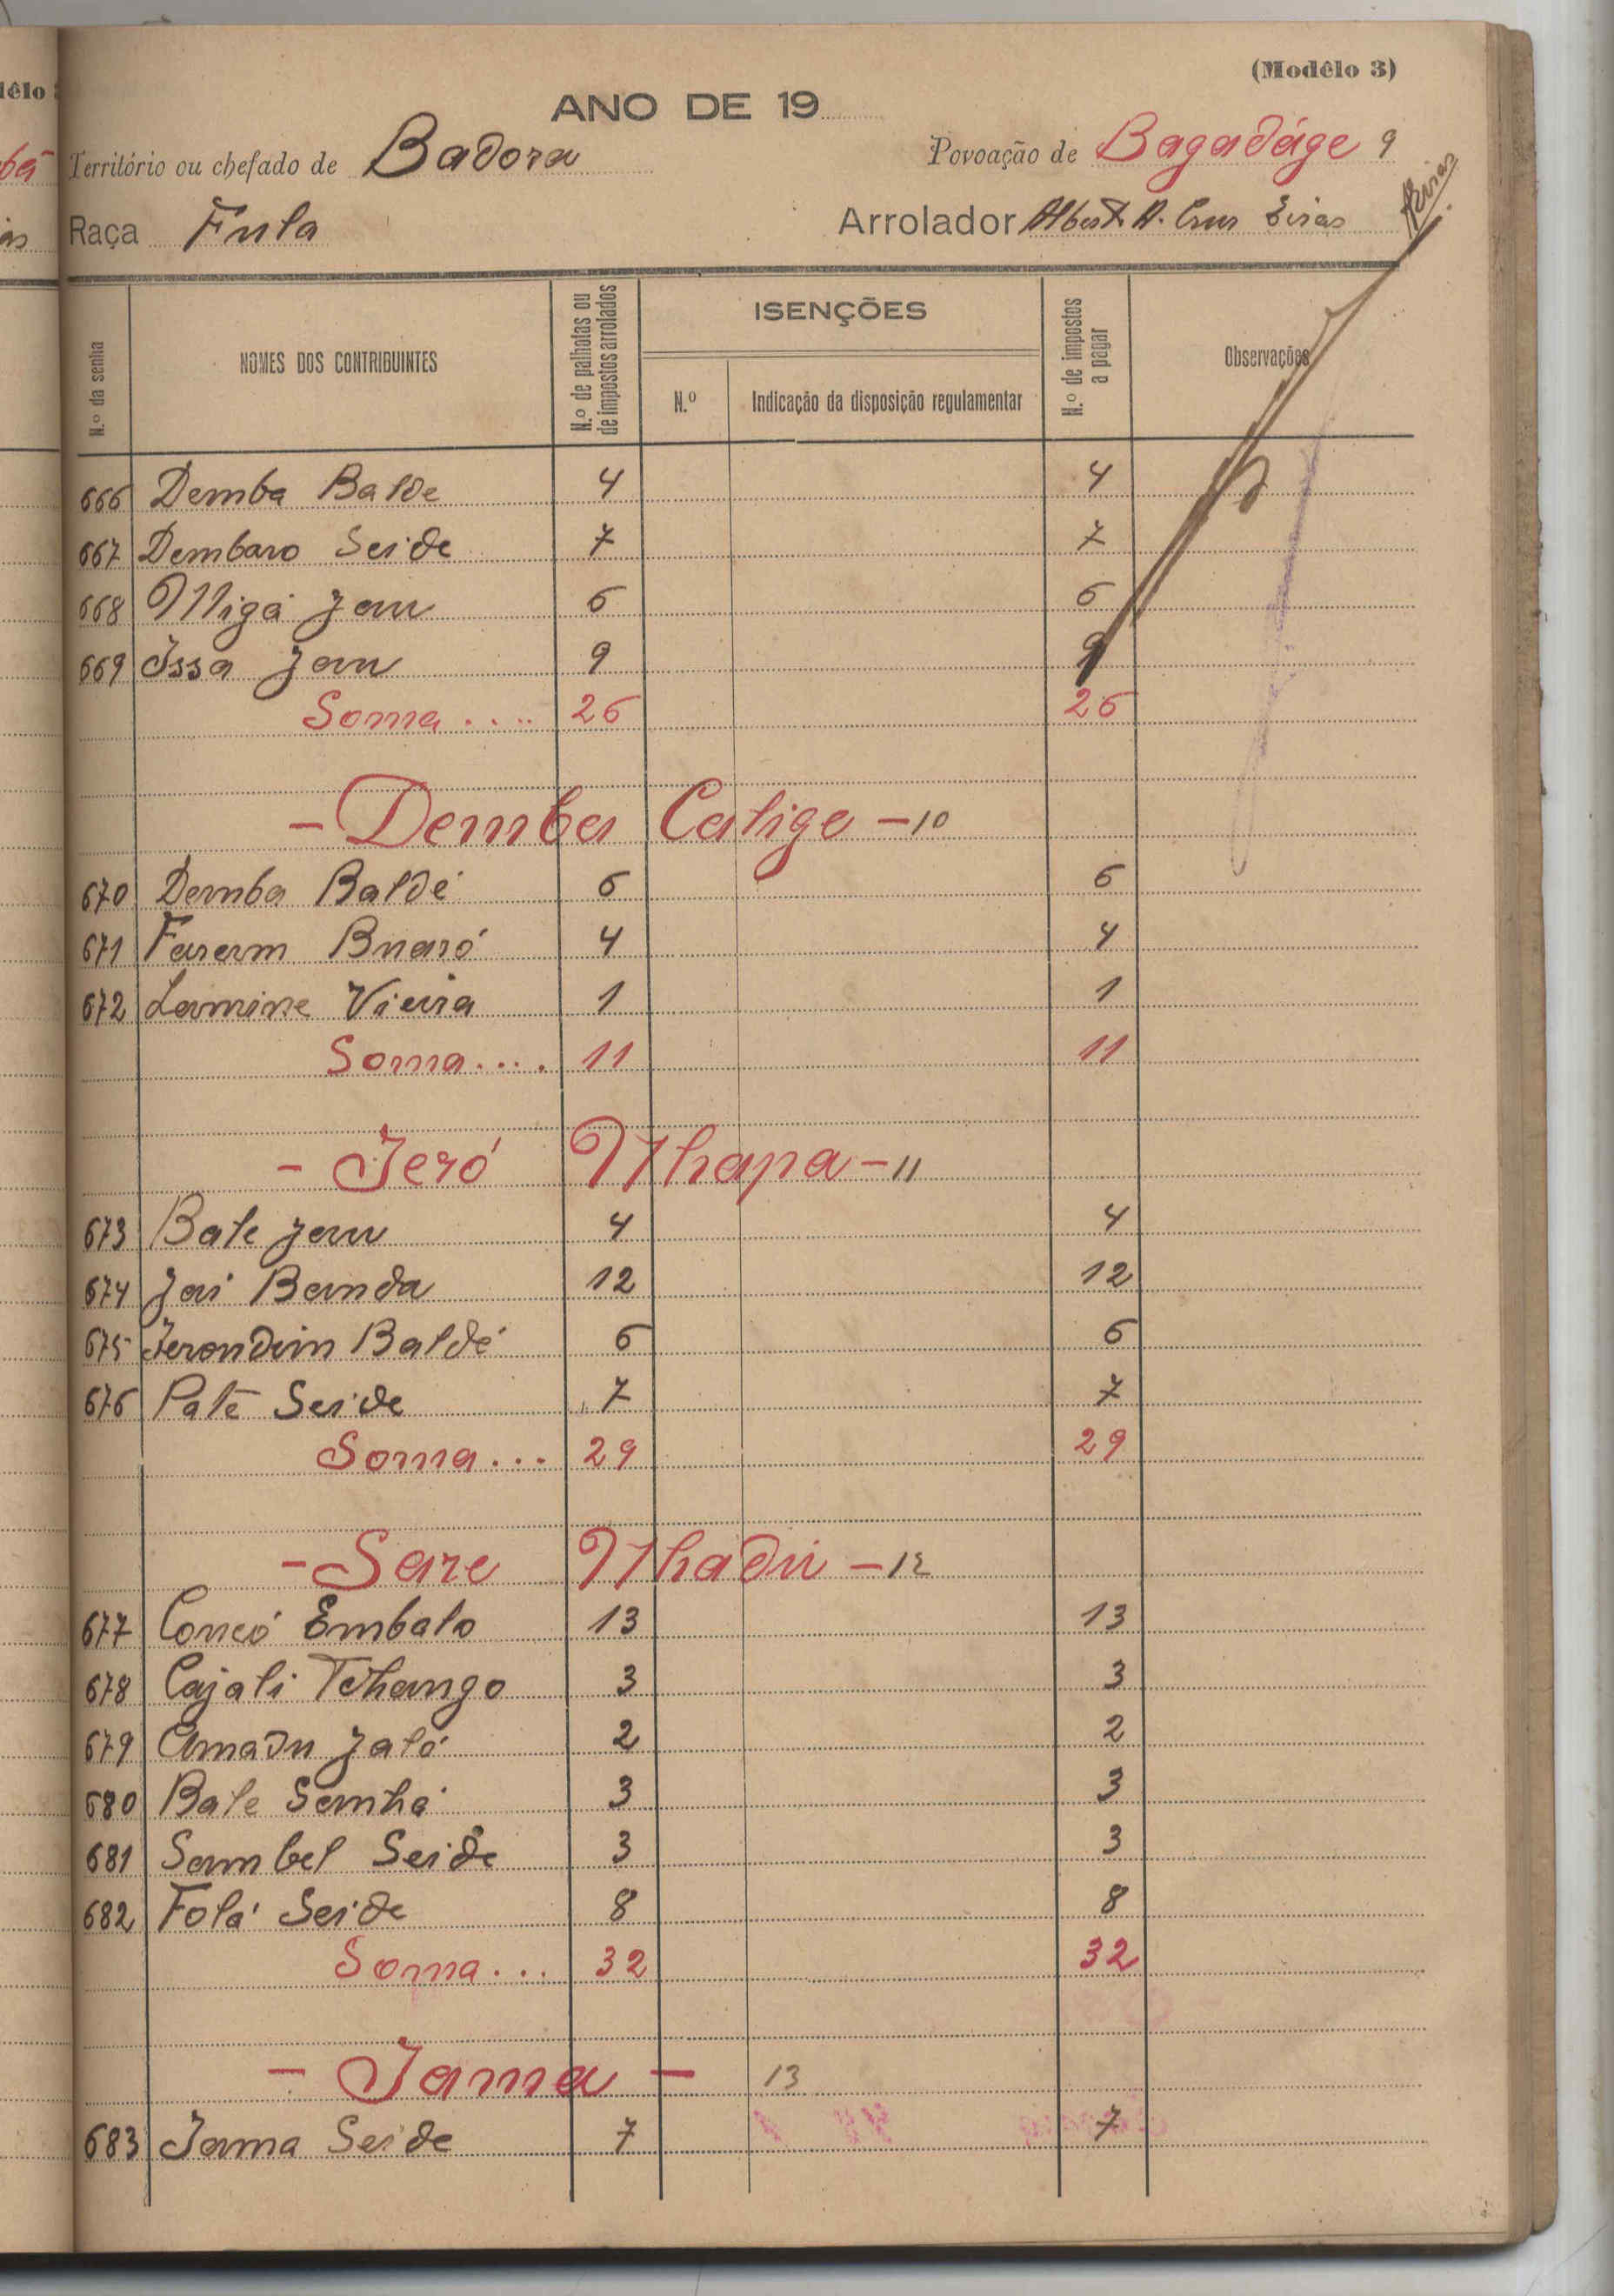 (Modêlo 3)
ANO DE 19
Território ou chefado de Badora Povoação de Bagadáge 9
Raça Fula Arrolador Albert A. Cruz Eiras
Eiras
N.º da senha NOMES DOS CONTRIBUINTES N.º de palhotas ou de impostos arrolados ISENÇÕES N.º de impostos a pagar Observações
N.º Indicação da disposição regulamentar
666 Demba Balde 4 4
667 Dembaro Seide 7 7
668 Migá Jau 6 6
669 Issa Jau 9 9
Soma.... 26 26
- Demba Catige - 10
670 Demba Baldé 6 6
671 Faram Buaró 4 4
672 Lamine Vieira 1 1
Soma.... 11 11
- Jeró Mhapa - 11
673 Bale Jau 4 4
674 Jai Banda 12 12
675 Jerondim Baldé 6 6
676 Paté Seide 7 7
Soma... 29 29
- Sare Mhadu - 12
677 Concó Embalo 13 13
678 Cajali Tchango 3 3
679 Amadu Jaló 2 2
680 Bale Sanhá 3 3
681 Sambel Seide 3 3
682 Folá Seide 8 8
Soma... 32 32
- Jama - 13
683 Jama Seide 7 7